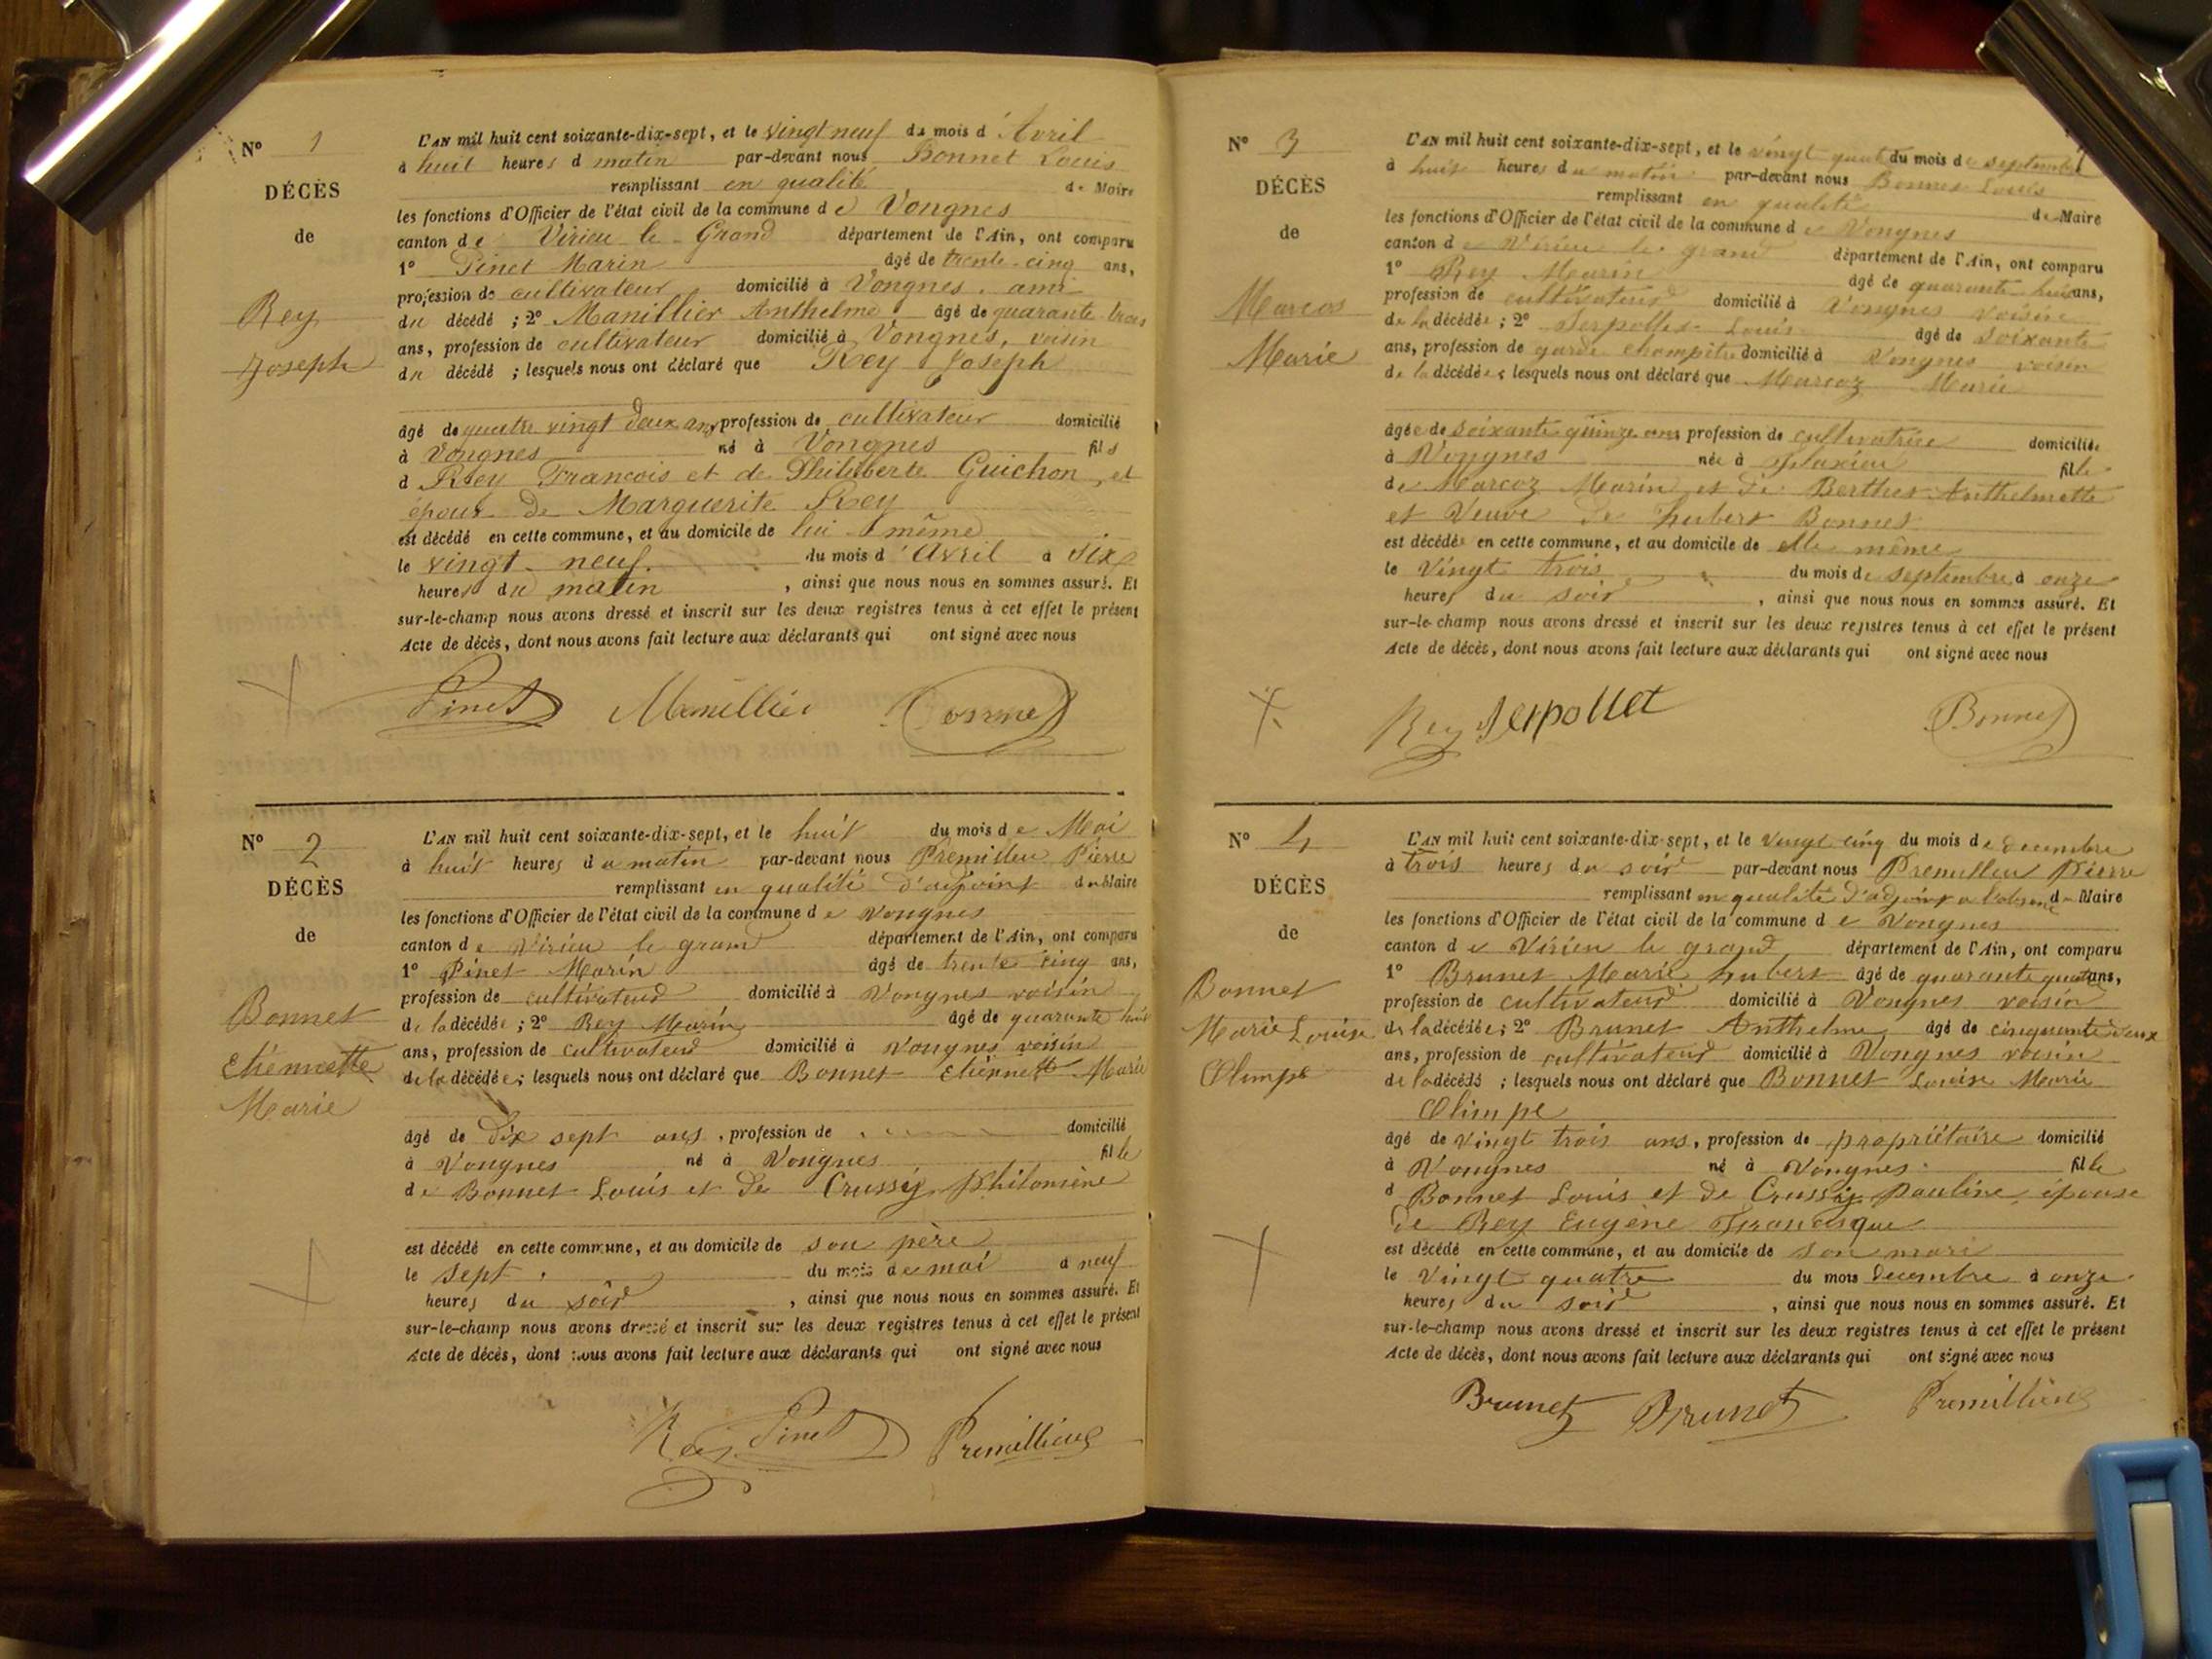 N° 1
DÉCÈS
de
Rey
Joseph
L'AN mil huit cent soixante-dix-sept, et le vingt neuf du mois d'Avril
à huit heures d matin par-devant nous Bonnet Louis
remplissant en qualité de Maire
les fonctions d'Officier de l'état civil de la commune de Vongnes
canton de Virieu le Grand département de l'Ain, ont comparu
1° Pinet Marin âgé de trente-cinq ans,
profession de cultivateur domicilié à Vongnes, ami
du décédé ; 2° Manillier Anthelme âgé de quarante trois
ans, profession de cultivateur domicilié à Vongnes, voisin
du décédé ; lesquels nous ont déclaré que Rey Joseph
âgé de quatre vingt deux ans profession de cultivateur domicilié
à Vongnes né à Vongnes fils
d Rey Francois et de Philiberte Guichon, et
époux de Marguerite Rey
est décédé en cette commune, et au domicile de lui même
le vingt neuf du mois d'Avril à six
heures du matin, ainsi que nous nous en sommes assuré. Et
sur-le-champ nous avons dressé et inscrit sur les deux registres tenus à cet effet le présent
Acte de décès, dont nous avons fait lecture aux déclarants qui ont signé avec nous
Pinet Manillier Bonnet
N° 2
DÉCÈS
de
Bonnet
Etiennette
Marie
L'AN mil huit cent soixante-dix-sept, et le huit du mois de Mai
à huit heures du matin par-devant nous Premillieu Pierre
remplissant en qualité d'adjoint du Maire
les fonctions d'Officier de l'état civil de la commune de Vongnes
canton de Virieu le grand département de l'Ain, ont comparu
1° Pinet Marin âgé de trente cinq ans,
profession de cultivateur domicilié à Vongnes voisin
de la décédée ; 2° Rey Marin âgé de quarante huit
ans, profession de cultivateur domicilié à Vongnes voisin
de la décédée ; lesquels nous ont déclaré que Bonnet Etiennette Marie
âgé de dix sept ans, profession de domicilié
à Vongnes né à Vongnes fille
de Bonnet Louis et de Crussy Philomène
est décédé en cette commune, et au domicile de son père
le sept du mois de mai à neuf
heures du soir, ainsi que nous nous en sommes assuré. Et
sur-le-champ nous avons dressé et inscrit sur les deux registres tenus à cet effet le présent
Acte de décès, dont nous avons fait lecture aux déclarants qui ont signé avec nous
Rey Pinet Premillieu
N° 3
DÉCÈS
de
Marcos
Marie
L'AN mil huit cent soixante-dix-sept, et le vingt quatre du mois de septembre
à huit heures du matin par-devant nous Bonnet Louis
remplissant en qualité de Maire
les fonctions d'Officier de l'état civil de la commune de Vongnes
canton de Virieu le grand département de l'Ain, ont comparu
1° Rey Marin âgé de quarante huit ans,
profession de cultivateur domicilié à Vongnes voisin
de la décédée ; 2° Serpollet Louis âgé de soixante
ans, profession de garde champêtre domicilié à Vongnes voisin
de la décédée ; lesquels nous ont déclaré que Marcoz Marie
âgée de soixante quinze ans profession de cultivatrice domiciliée
à Vongnes née à Flaxieu fille
de Marcoz Marin et de Berthet Anthelmette
et veuve de hubert Bonnet
est décédée en cette commune, et au domicile de elle même
le vingt trois du mois de septembre à onze
heures du soir, ainsi que nous nous en sommes assuré. Et
sur-le-champ nous avons dressé et inscrit sur les deux registres tenus à cet effet le présent
Acte de décès, dont nous avons fait lecture aux déclarants qui ont signé avec nous
Rey Serpollet Bonnet
N° 4
DÉCÈS
de
Bonnet
Marie Louise
Olimpe
L'AN mil huit cent soixante-dix-sept, et le vingt cinq du mois de decembre
à trois heures du soir par-devant nous Premillieu Pierre
remplissant en qualité d'adjoint a l'absence du Maire
les fonctions d'Officier de l'état civil de la commune de Vongnes
canton de Virieu le grand département de l'Ain, ont comparu
1° Brunet Marie hubert âgé de quarante quatre ans,
profession de cultivateur domicilié à Vongnes voisin
de la décédée ; 2° Brunet Anthelme âgé de cinquante deux
ans, profession de cultivateur domicilié à Vongnes voisin
de la décédé ; lesquels nous ont déclaré que Bonnet Louise Marie
Olimpe
âgé de vingt trois ans, profession de propriétaire domicilié
à Vongnes né à Vongnes fille
d Bonnet Louis et de Crussy pauline épouse
de Rey Eugène Francisque
est décédé en cette commune, et au domicile de son mari
le vingt quatre du mois decembre à onze
heures du soir, ainsi que nous nous en sommes assuré. Et
sur-le-champ nous avons dressé et inscrit sur les deux registres tenus à cet effet le présent
Acte de décès, dont nous avons fait lecture aux déclarants qui ont signé avec nous
Brunet Brunet Premillieu